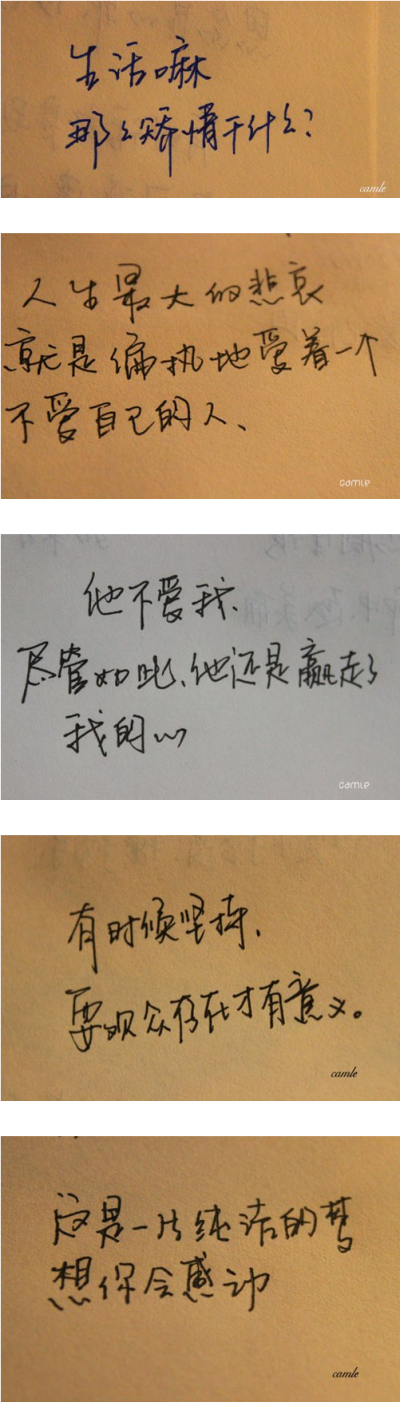 生活嘛
那么矫情干什么?
camle
人生最大的悲哀
就是偏执地爱着一个
不爱自己的人、
camle
他不爱我、
尽管如此、他还是赢走了
我的心
camle
有时候坚持、
要观众存在才有意义。
camle
这是一片纯洁的梦
想你会感动
camle